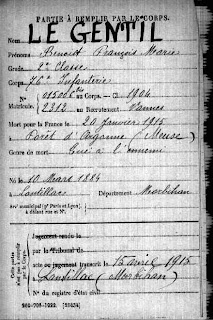 PARTIE À REMPLIR PAR LE CORPS.
Nom LE GENTIL
Prénoms Benoit François Marie
Grade 2e Classe
Corps 76e Infanterie
N° 015 au Corps. — Cl. 1904
Matricule. 2312 au Recrutement Vannes
Mort pour la France le 20 Janvier 1915
à Forêt d'Argonne (Meuse)
Genre de mort Tué à l'ennemi
Né le 10 Mars 1884
à Lantillac Département Morbihan
Arr' municipal (p' Paris et Lyon),
à défaut rue et N°.
Cette partie
n'est pas à remplir
par le Corps.
Jugement rendu le
par le Tribunal de
acte ou jugement transcrit le 15 avril 1915
à Lantillac (Morbihan)
N° du registre d'état civil